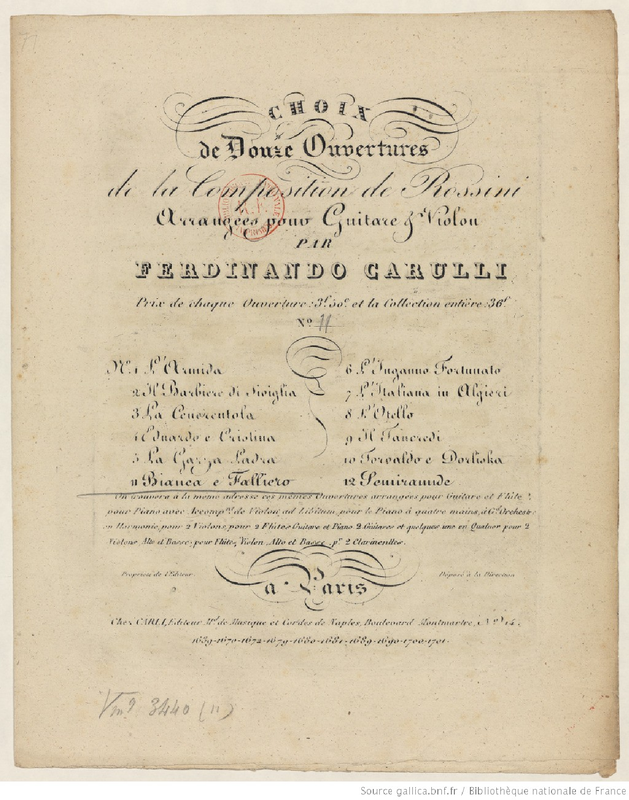 CHOIX
de Douze Ouvertures
de la Composition de Rossini
Arrangées pour Guitare & Violon
PAR
FERDINANDO CARULLI
Prix de chaque Ouverture: 3f. 50c. et la Collection entière: 36f
No. 11
No. 1 L'Armida
2 Il Barbiere di Siviglia
3 La Cenerentola
4 Eduardo e Cristina
5 La Gazza Ladra
11 Bianca e Falliero
6 L'Inganno Fortunato
7 L'Italiana in Algieri
8 L'Otello
9 Il Tancredi
10 Torvaldo e Dorliska
12 Semiramide
On trouvera à la même adresse ces mêmes Ouvertures arrangées pour Guitare et Flûte
pour Piano avec Accompt. de Violon, ad Libitum, pour le Piano à quatre mains, à Gd. Orchestre
en Harmonie, pour 2 Violons, pour 2 Flûtes Guitare et Piano 2 Guitares et quelques unes en Quatuor pour 2
Violons Alto et Basse; pour Flûte, Violon, Alto et Basse, pr. 2 Clarinettes.
Propriété de l'Editeur
Déposé à la Direction
à Paris
Chez CARLI, Editeur Md. de Musique et Cordes de Naples, Boulevard Montmartre, No. 14.
1659-1670-1672-1679-1680-1681-1689-1690-1700-1701.
Vm9 3440 (11)
Source gallica.bnf.fr / Bibliothèque nationale de France